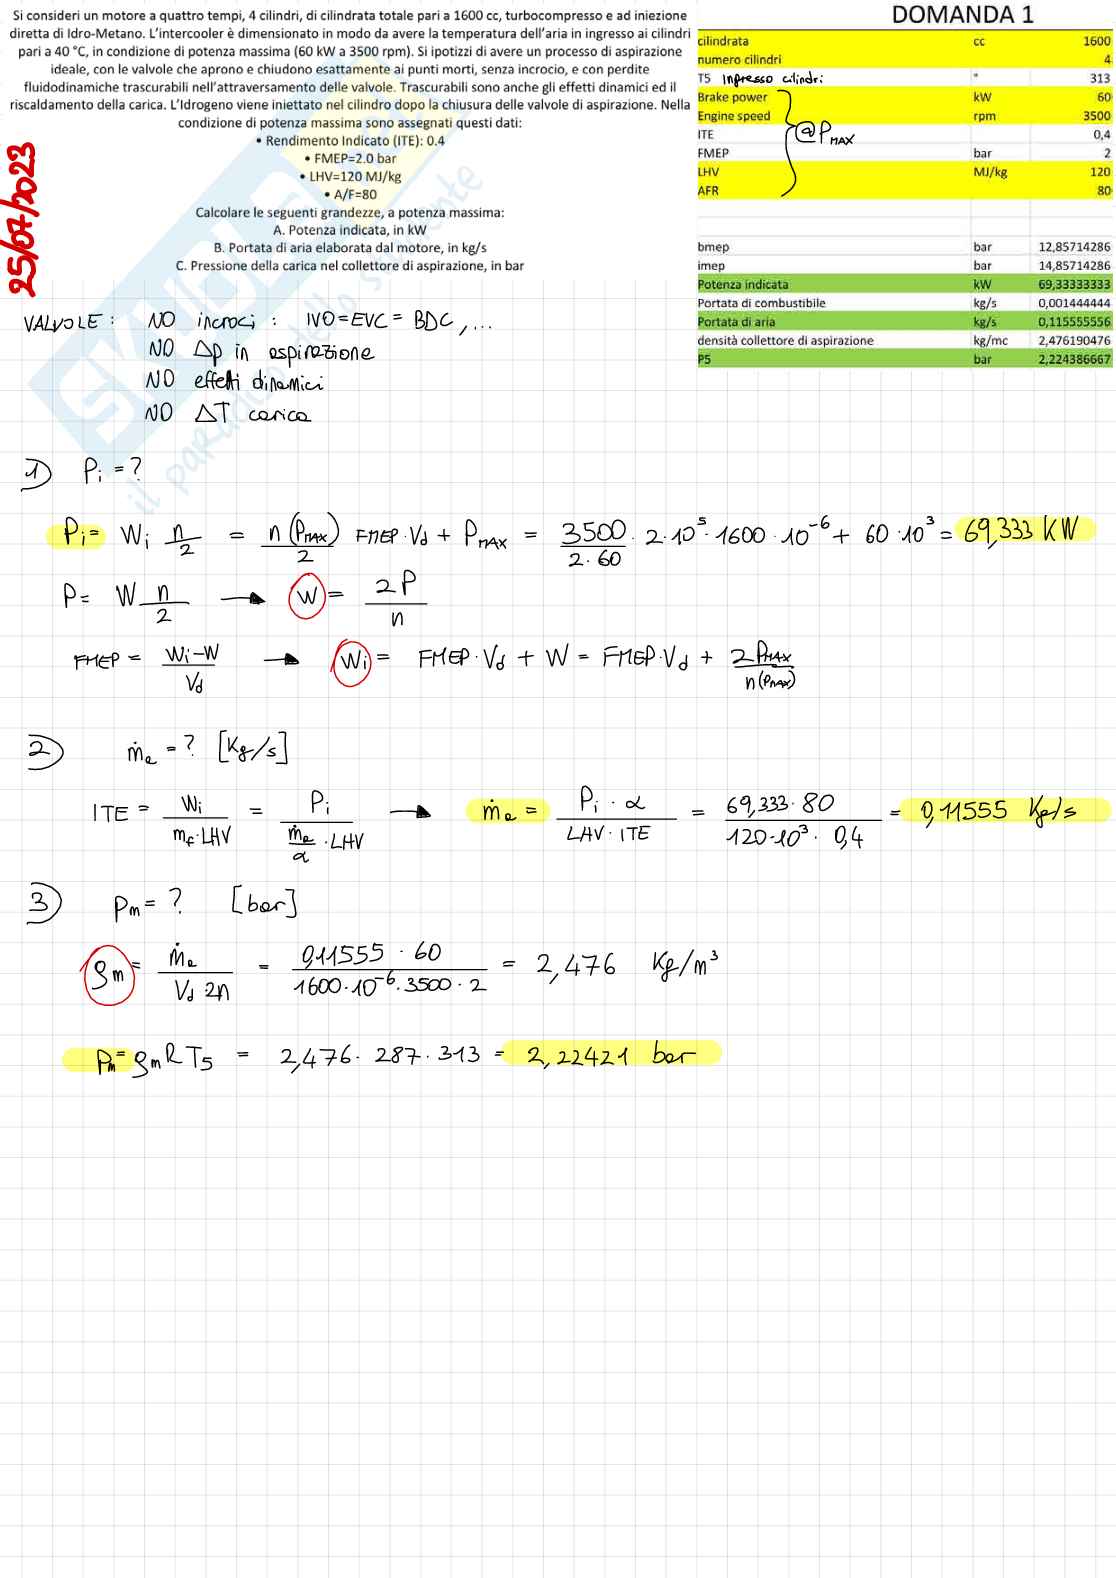 Si consideri un motore a quattro tempi, 4 cilindri, di cilindrata totale pari a 1600 cc, turbocompresso e ad iniezione
diretta di Idro-Metano. L'intercooler è dimensionato in modo da avere la temperatura dell'aria in ingresso ai cilindri
pari a 40 °C, in condizione di potenza massima (60 kW a 3500 rpm). Si ipotizzi di avere un processo di aspirazione
ideale, con le valvole che aprono e chiudono esattamente ai punti morti, senza incrocio, e con perdite
fluidodinamiche trascurabili nell'attraversamento delle valvole. Trascurabili sono anche gli effetti dinamici ed il
riscaldamento della carica. L'Idrogeno viene iniettato nel cilindro dopo la chiusura delle valvole di aspirazione. Nella
condizione di potenza massima sono assegnati questi dati:
• Rendimento Indicato (ITE): 0.4
• FMEP=2.0 bar
• LHV=120 MJ/kg
• A/F=80
Calcolare le seguenti grandezze, a potenza massima:
A. Potenza indicata, in kW
B. Portata di aria elaborata dal motore, in kg/s
C. Pressione della carica nel collettore di aspirazione, in bar
25/07/2023
DOMANDA 1
cilindrata cc 1600
numero cilindri 4
T5 Ingresso cilindri ° 313
Brake power kW 60
Engine speed rpm 3500
@PMAX
ITE 0,4
FMEP bar 2
LHV MJ/kg 120
AFR 80
bmep bar 12,85714286
imep bar 14,85714286
Potenza indicata kW 69,33333333
Portata di combustibile kg/s 0,001444444
Portata di aria kg/s 0,115555556
densità collettore di aspirazione kg/mc 2,476190476
P5 bar 2,224386667
VALVOLE : NO incroci : IVO=EVC = BDC , ...
NO Δp in aspirazione
NO effetti dinamici
NO ΔT carica
1) Pi = ?
Pi = Wi n/2 = n(PMAX)/2 FMEP·Vd + PMAX = 3500/(2·60) · 2·10⁵·1600·10⁻⁶ + 60·10³ = 69,333 KW
P = W n/2 → W = 2P/n
FMEP = (Wi-W)/Vd → Wi = FMEP·Vd + W = FMEP·Vd + 2PMAX/n(PMAX)
2) ṁa = ? [Kg/s]
ITE = Wi/(mf·LHV) = Pi/(ṁa/α · LHV) → ṁa = Pi · α/(LHV · ITE) = 69,333·80/(120·10³ · 0,4) = 0,11555 Kg/s
3) pm = ? [bar]
ρm = ṁa/(Vd 2n) = 0,11555 · 60/(1600·10⁻⁶·3500·2) = 2,476 Kg/m³
Pm = ρm R T5 = 2,476 · 287 · 313 = 2,22421 bar
il paradiso dello studente